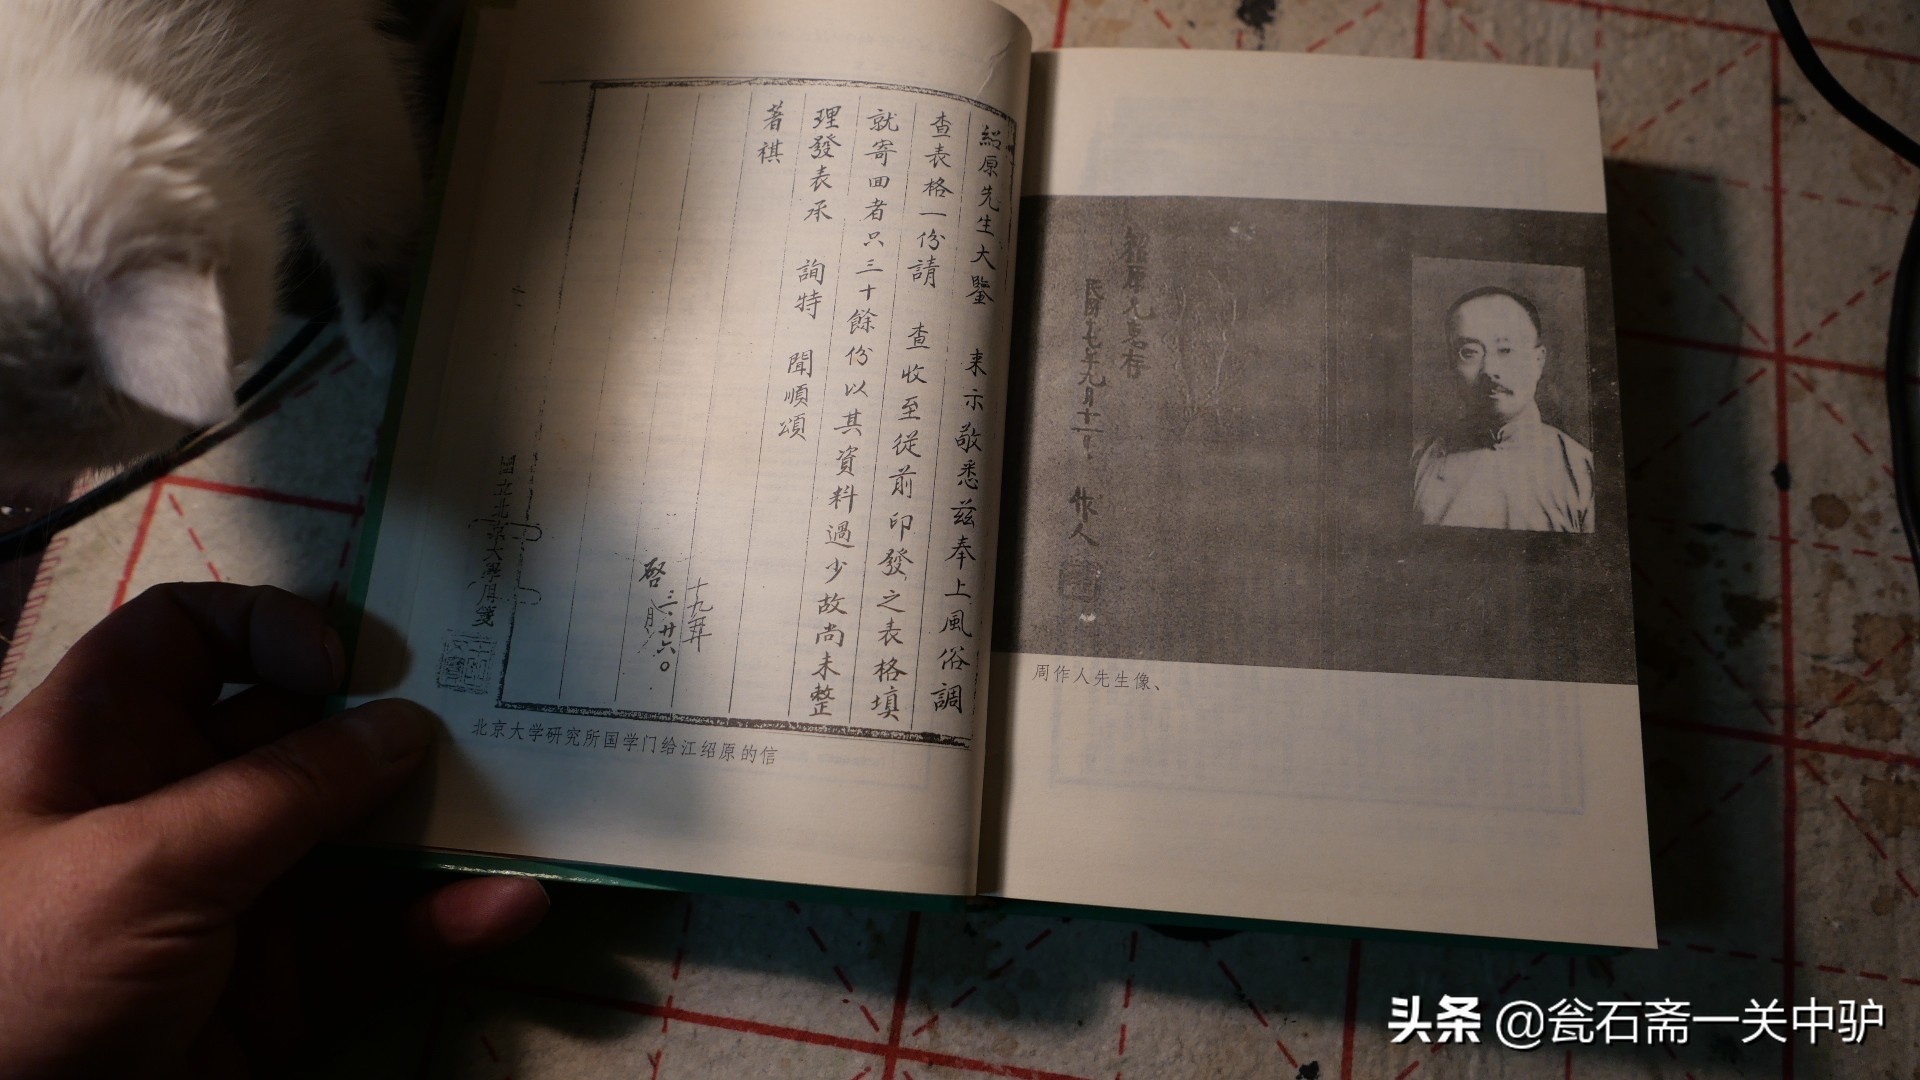 紹原先生大鑒 来示敬悉茲奉上風俗調
查表格一份請 查收至從前印發之表格填
就寄回者只三十餘份以其資料過少故尚未整
理發表承 詢特 聞順頌
著祺
十九年
啓 三月廿六。
國立北京大學用箋
北京大学研究所国学门给江绍原的信
紹原兄惠存
民国十七年九月十一日 作人
周作人先生像、
头条 @瓮石斋一关中驴